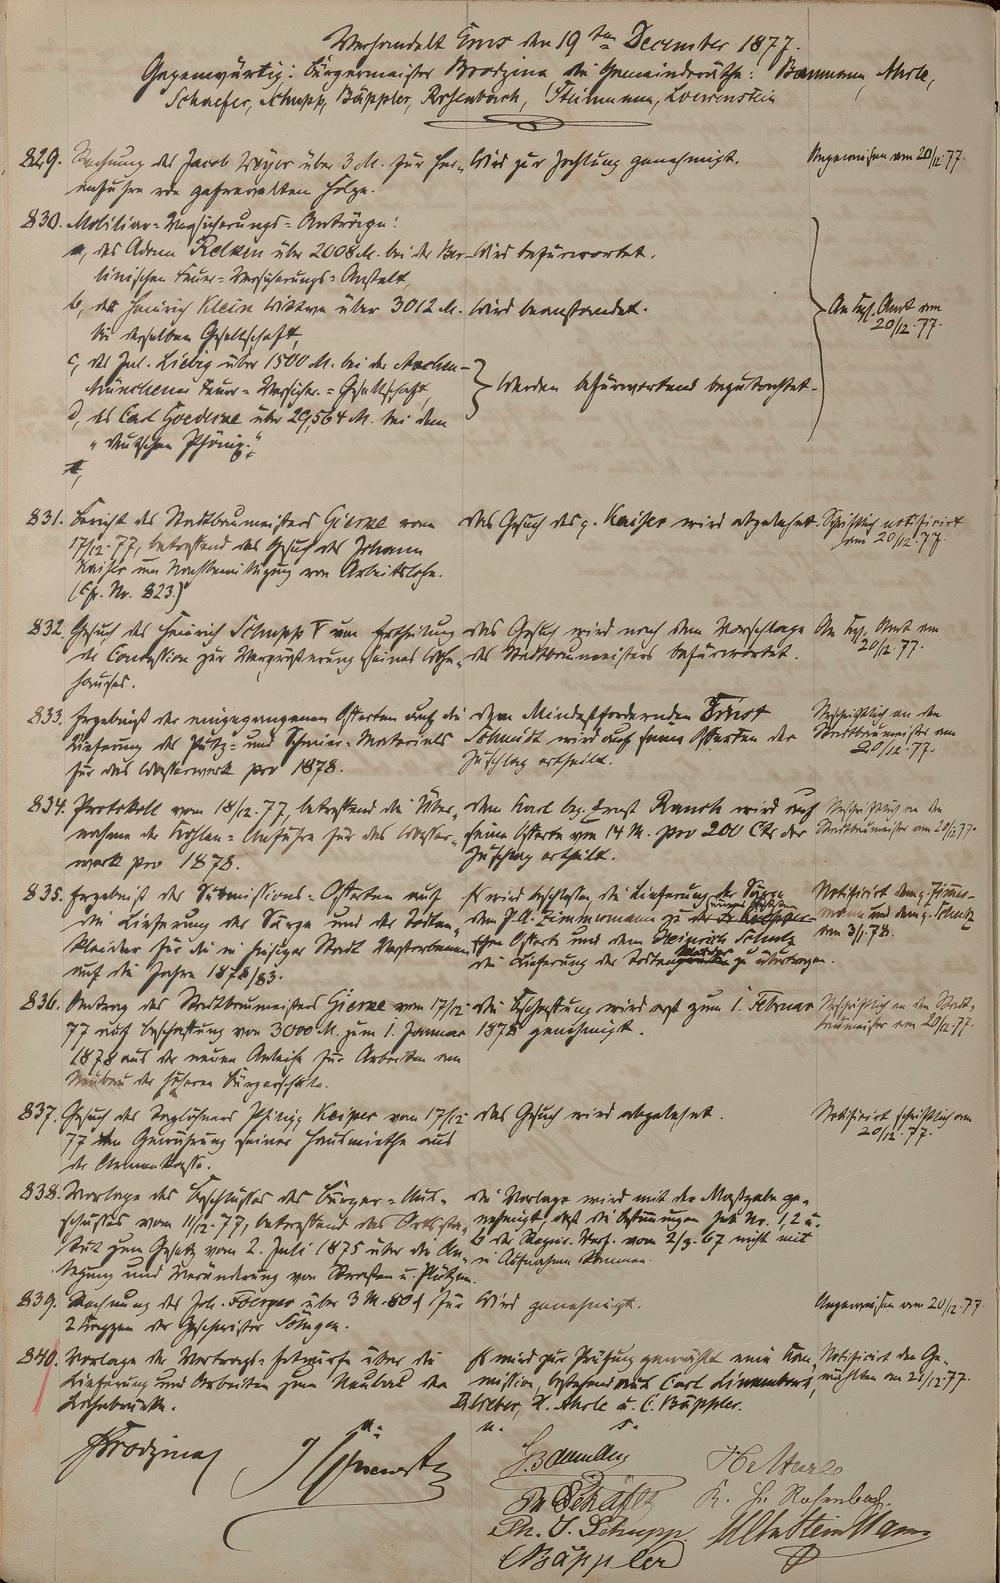 Verhandelt Ems den 19ten December 1877.
Gegenwärtig: Bürgermeister Brodzina, die Gemeinderäthe: Baumann, Ahrle,
Schaefer, Schupp, Bäppler, Rosenbach, Steinmann, Loewenstein
829. Rechnung des Jacob Weyer über 3 M. für Her-
anfuhre von gefrevelten Holze.
Wird zur Zahlung genehmigt.
Angewiesen am 20/12.77.
830. Mobiliar-Versicherungs-Anträge:
a, des Adam über 2008 M. bei der Ber-
linischen Feuer-Versicherungs-Anstalt,
Wird befürwortet.
b, der Heinrich Klein Wittwe über 3012 M.
bei derselben Gesellschaft,
Wird beanstandet.
c, des Jul. Liebig über 1500 M. bei der Aachen-
Münchener Feuer-Versicher.-Gesellschaft,
d, des Carl Goedecke über 29,564 M. bei dem
"Deutschen Phönix."
Werden befürwortend begutachtet.
An Kgl. Amt am
20/12.77.
831. Bericht des Stadtbaumeisters Gierke vom
17/12.77, betreffend das Gesuch des Johann
Kaiser um Nachbewilligung von Arbeitslohn.
(Cfr. Nr. 823.)
Das Gesuch des p. Kaiser wird abgelehnt.
Schriftlich notificirt
am 20/12.77.
832. Gesuch des Heinrich Schupp V um Ertheilung
der Concession zur Vergrößerung seines Wohn-
hauses.
Das Gesuch wird nach dem Vorschlage
des Stadtbaumeisters befürwortet.
An Kgl. Amt am
20/12.77.
833. Ergebniß der eingegangenen Offerten auf die
Lieferung des Putz- und Schmier-Materials
für das Wasserwerk pro 1878.
Dem Mindestfordernden Ernst
Schmidt wird auf seine Offerten der
Zuschlag ertheilt.
Abschriftlich an den
Stadtbaumeister am
20/12.77.
834. Protokoll vom 18/12.77, betreffend die Über-
nahme der Kohlen-Anfuhre für das Wasser-
werk pro 1878.
Dem Karl Ernst Rauch wird auf
seine Offerte von 14 M. pro 200 Ctr der
Zuschlag ertheilt.
Abschriftlich an den
Stadtbaumeister am 20/12.77.
835. Ergebniß der Submissions-Offerten auf
die Lieferung der Särge und der Todten-
kleider für die in hiesiger Stadt Verstorbenen
auf die Jahre 1878/83.
Es wird beschlossen, die Lieferung der Särge
dem J. A. Zimmermann zu der
Offerte und dem Heinrich Schulz
die Lieferung der Todten zu übertragen.
Notificirt dem p. Zimmer-
mann und dem p. Schulz
am 3/1.78.
836. Antrag des Stadtbaumeisters Gierke vom 17/12
77 auf Beschaffung von 3000 M. zum 1. Januar
1878 aus der neuen Anleihe zur Arbeiten am
Neubau der höheren Bürgerschule.
Die Beschaffung wird erst zum 1. Februar
1878 genehmigt.
Abschriftlich an den Stadt-
baumeister am 20/12.77.
837. Gesuch des Taglöhners Philipp Keiper vom 17/12
77 um Gewährung seiner Hausmiethe aus
der Armenkasse.
Das Gesuch wird abgelehnt.
Notificirt schriftlich am
20/12.77.
838. Vorlage des Beschlusses des Bürger-Aus-
schusses vom 11/12.77, betreffend das Ortssta-
tut zum Gesetz vom 2. Juli 1875 über die An-
legung und Veränderung von Straßen u. Plätzen.
Die Vorlage wird mit der Maßgabe ge-
nehmigt, daß die Bestimmungen sub Nr. 1, 2 u.
6 der Regier. Verf. vom 2/9.67 nicht mit
in Aufnahme kommen.
839. Rechnung des Joh. über 3 M. 80 d für
2 der Geschwister
Wird genehmigt.
Angewiesen am 20/12.77.
840. Vorlage der Vertrags-Entwürfe über die
Lieferung und Arbeiten zum Neubau der
Lahnbrücke.
Es wird zur Prüfung gewählt eine Com-
mission, bestehend aus Carl Linkenbach,
D. Lieber, H. Ahrle u. C. Bäppler.
Notificirt den Ge-
wählten am 21/12.77.
u. s.
Brodzina
G. Baumann
H. Ahrle
Ph. Schäfer
K. H. Rosenbach
Ph. J. Schupp
Wilh Steinmann
C Bäppler